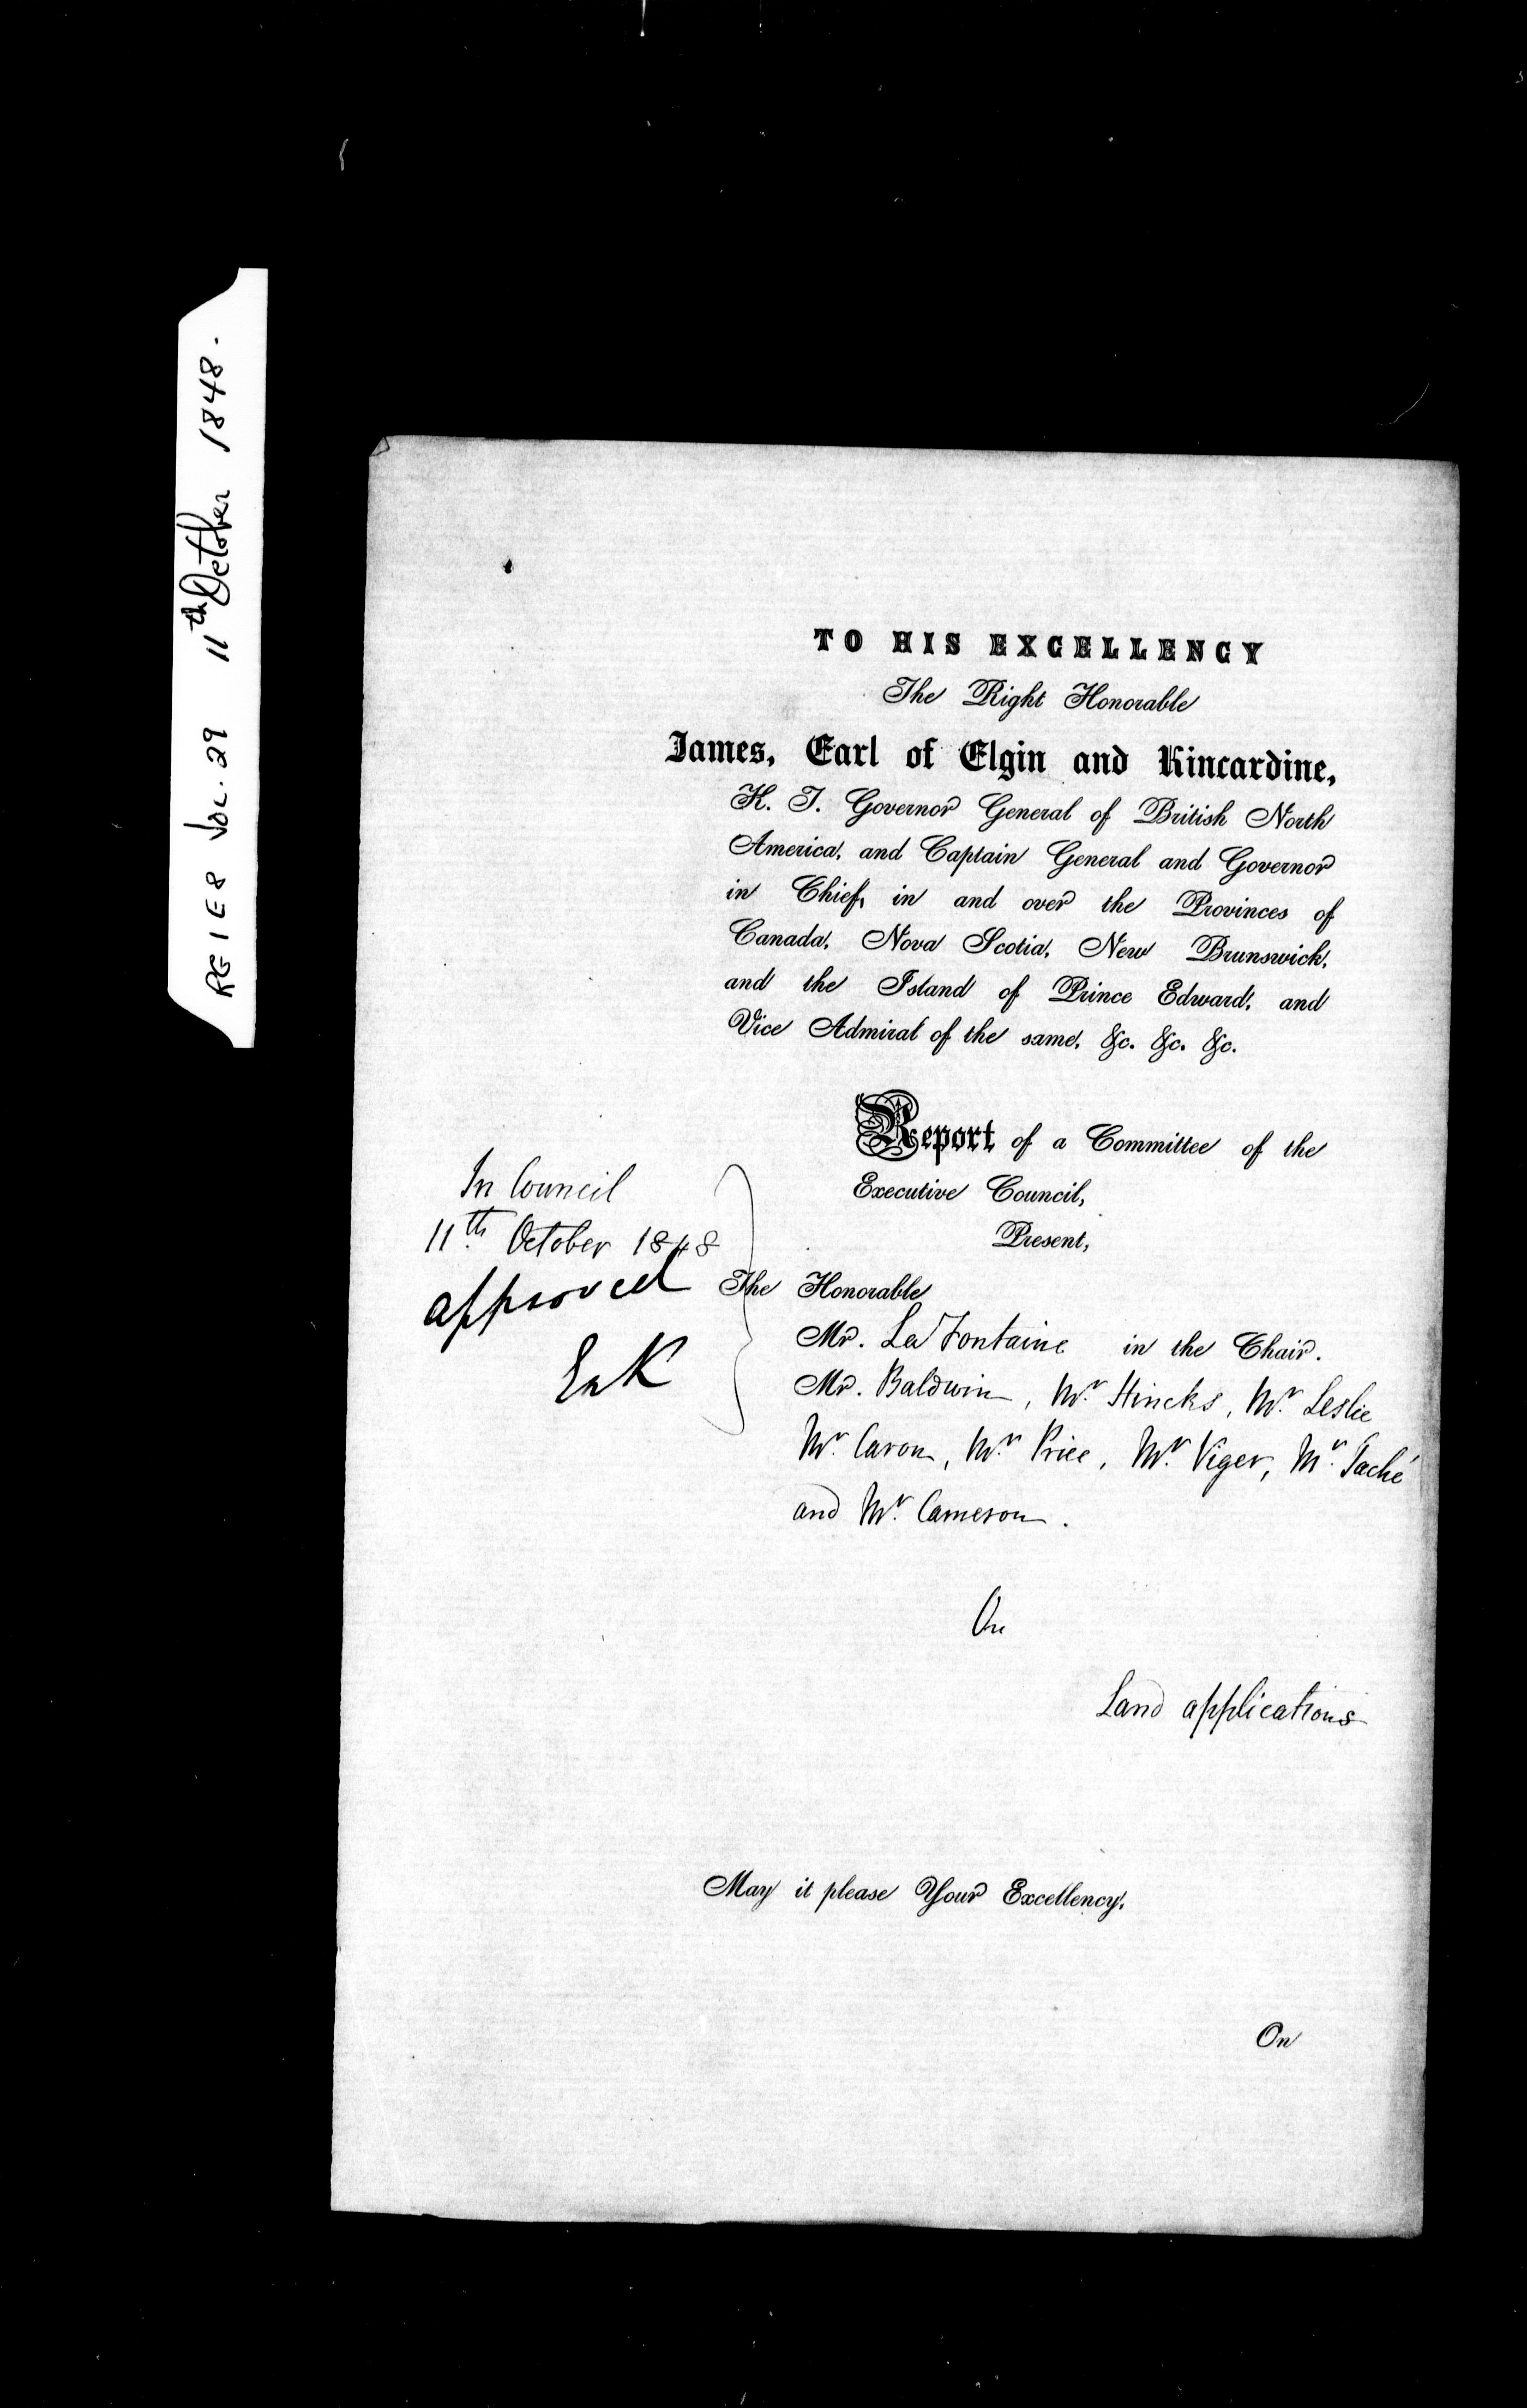 RG 1 E 8 Vol. 29 11th October 1848.
TO HIS EXCELLENCY
The Right Honorable
James, Earl of Elgin and Kincardine,
K. T. Governor General of British North
America, and Captain General and Governor
in Chief, in and over the Provinces of
Canada, Nova Scotia, New Brunswick,
and the Island of Prince Edward, and
Vice Admiral of the same, &c. &c. &c.
Report of a Committee of the
Executive Council,
Present,
In Council
11th October 1848
approved
E&K
The Honorable
Mr. LaFontaine in the Chair.
Mr. Baldwin, Mr. Hincks, Mr. Leslie
Mr. Caron, Mr. Price, Mr. Viger, Mr. Taché
and Mr. Cameron.
On
Land applications
May it please Your Excellency,
On